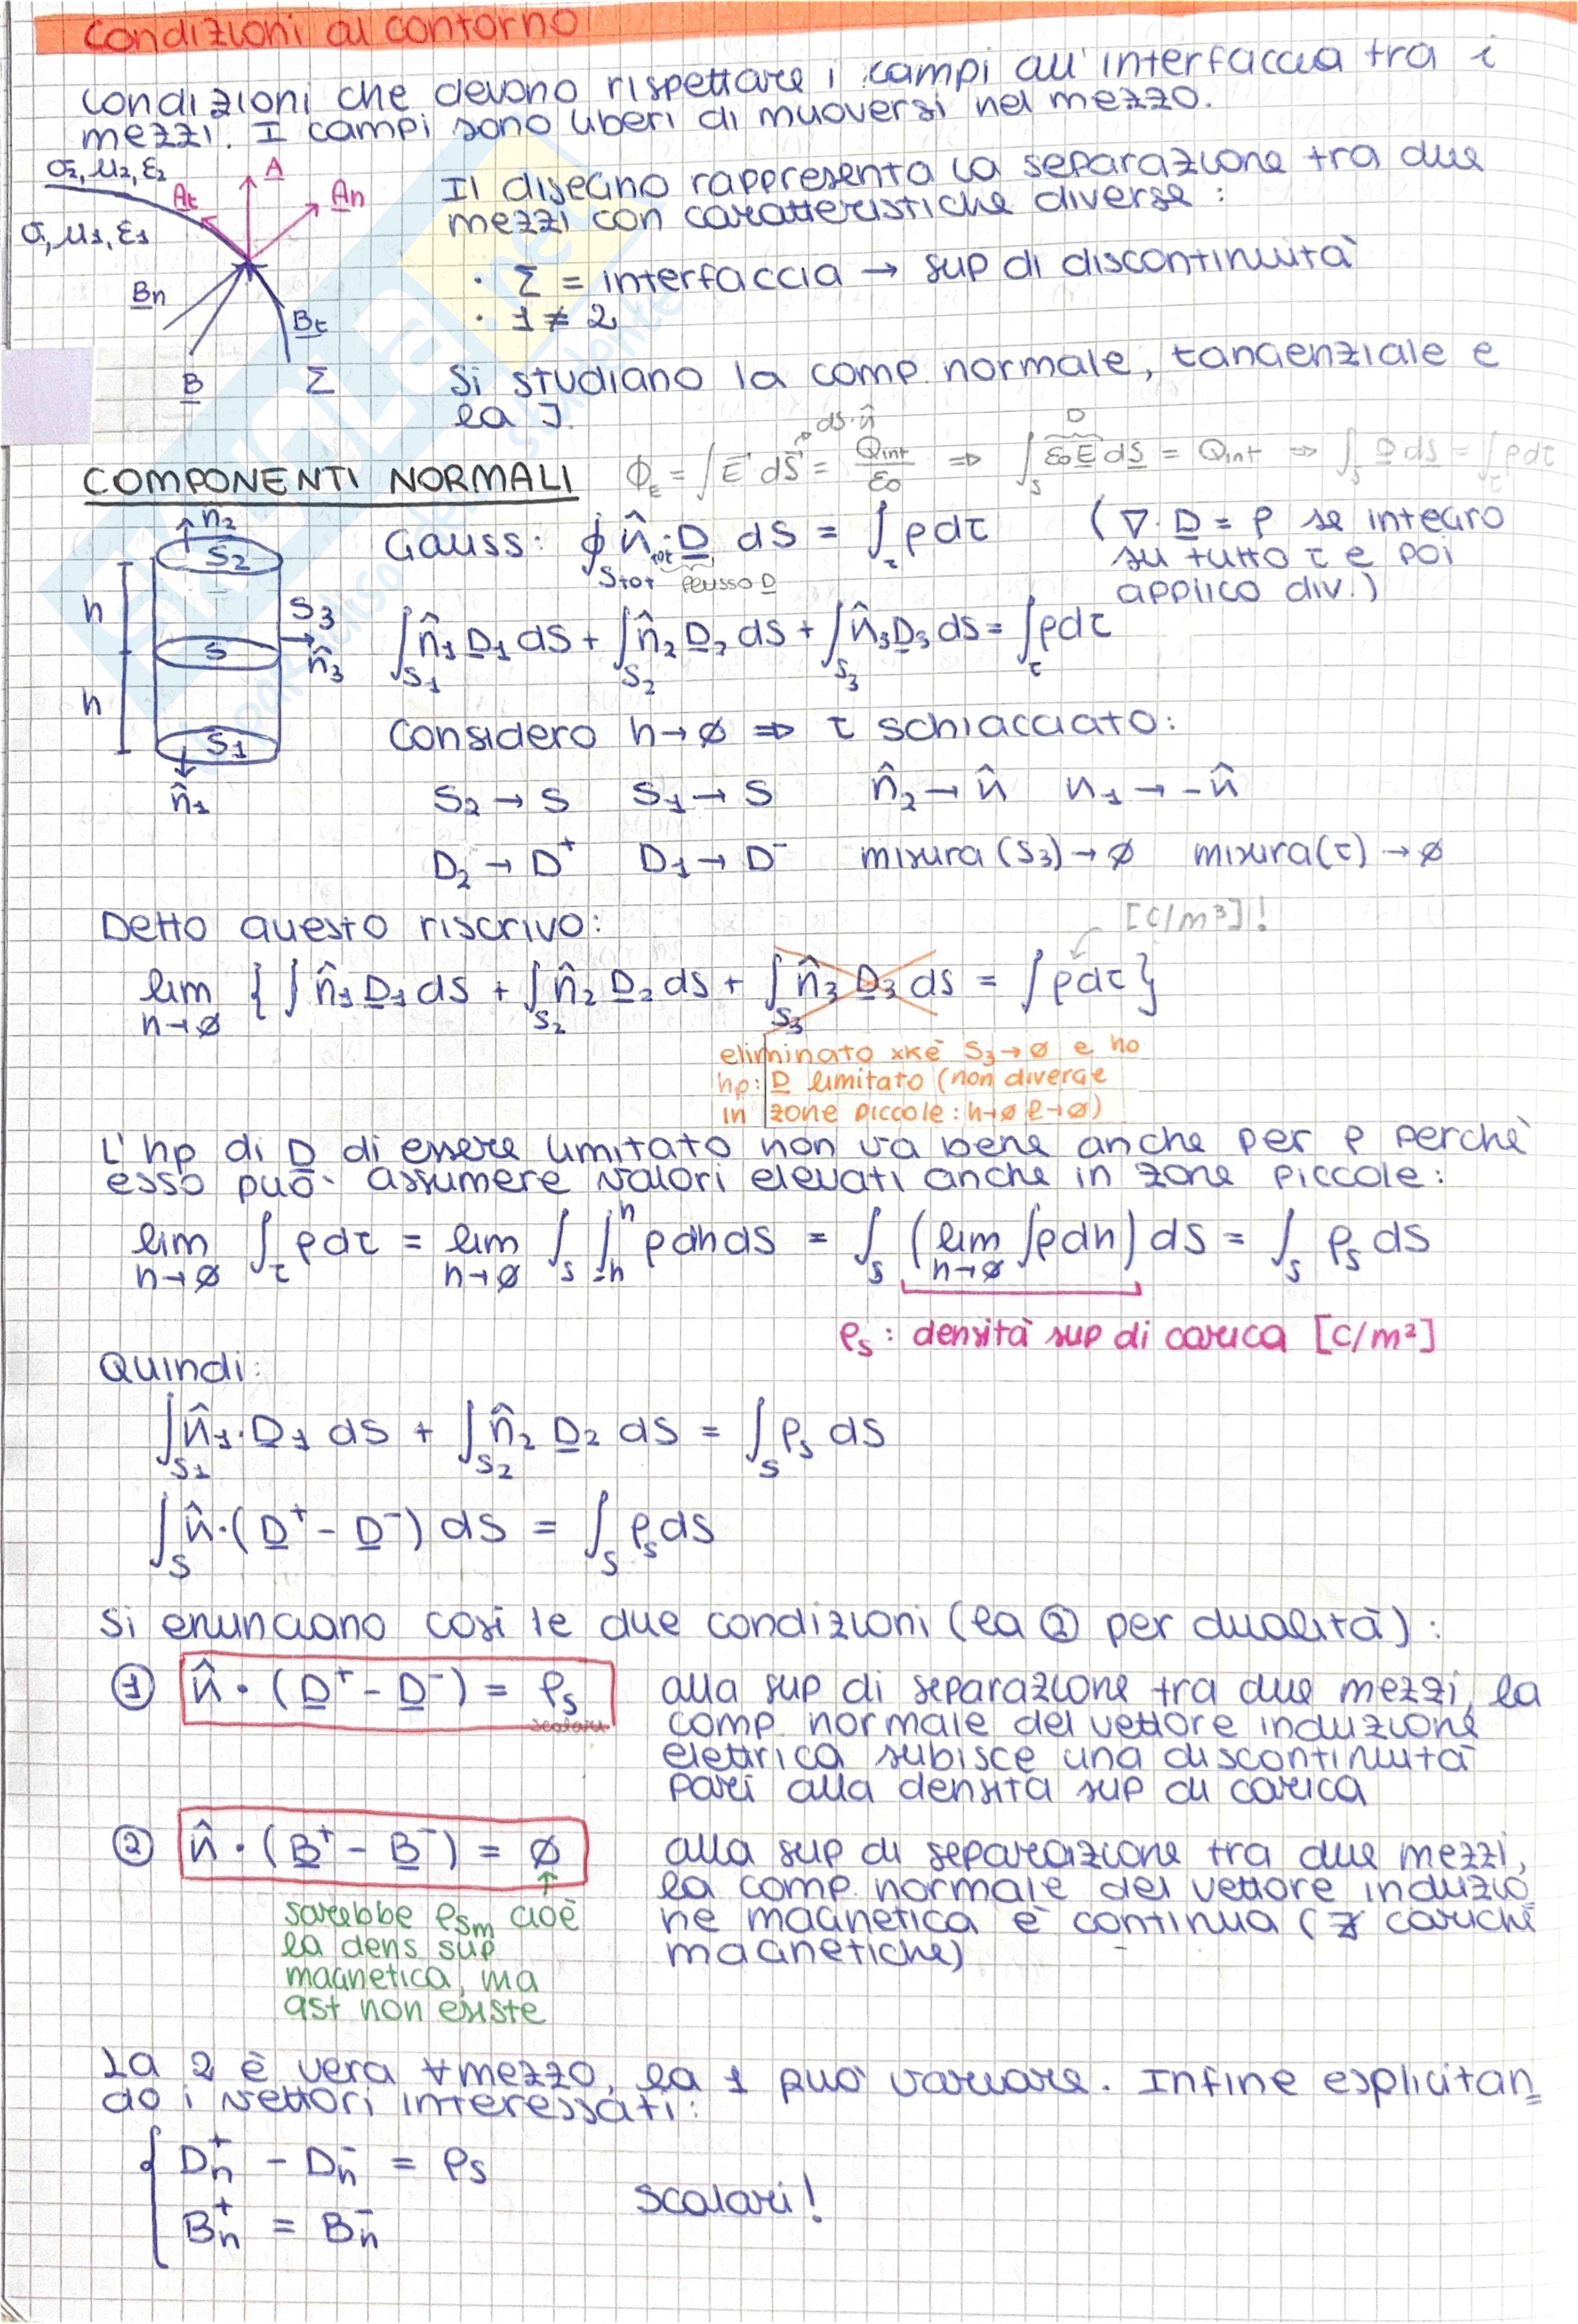 condizioni al contorno
condizioni che devono rispettare i campi all'interfaccia tra i
mezzi. I campi sono liberi di muoversi nel mezzo.
σ2, μ2, ε2
At A An
σ, μ1, ε1
Bn
Bt
B Σ
Il disegno rappresenta la separazione tra due
mezzi con caratteristiche diverse:
· Σ = interfaccia → sup di discontinuità
· 1 ≠ 2
Si studiano la comp. normale, tangenziale e
la J.
COMPONENTI NORMALI
ds·n̂
Φ_E = ∫ E⃗ dS⃗ = Qint/ε0 ⇒ ∫_S ε0E dS = Qint ⇒ ∫_S D dS = ∫_τ ρdτ
D
n̂2
S2
h
S3
S n̂3
h
S1
n̂1
Gauss: ∮_Stot n̂tot · D dS = ∫_τ ρdτ (∇·D = ρ se integro
flusso D
su tutto τ e poi
applico div.)
∫_S1 n̂1 D1 dS + ∫_S2 n̂2 D2 dS + ∫_S3 n̂3 D3 dS = ∫_τ ρdτ
Considero h→∅ ⇒ τ schiacciato:
S2 → S S1 → S n̂2 → n̂ n1 → -n̂
D2 → D⁺ D1 → D⁻ misura(S3) → ∅ misura(τ) → ∅
Detto questo riscrivo:
[C/m³]!
lim h→∅ { ∫ n̂1 D1 dS + ∫_S2 n̂2 D2 dS + ∫_S3 n̂3 D3 dS = ∫ρdτ }
eliminato xkè S3→∅ e ho
hp: D limitato (non diverge
in zone piccole: h→∅ l→∅)
L'hp di D di essere limitato non va bene anche per ρ perchè
esso può assumere valori elevati anche in zone piccole:
lim h→∅ ∫_τ ρdτ = lim h→∅ ∫_S ∫_-h^h ρdhds = ∫_S (lim h→∅ ∫ρdh) dS = ∫_S ρs dS
ρs: densità sup di carica [C/m²]
Quindi:
∫_S1 n̂1·D1 dS + ∫_S2 n̂2 D2 dS = ∫_S ρs dS
∫_S n̂·(D⁺ - D⁻) dS = ∫_S ρs dS
Si enunciano così le due condizioni (la ② per dualità):
① n̂ · (D⁺ - D⁻) = ρs
scalari
alla sup di separazione tra due mezzi, la
comp. normale del vettore induzione
elettrica subisce una discontinuità
pari alla densità sup di carica
② n̂ · (B⁺ - B⁻) = ∅
↑
sarebbe ρsm cioè
la dens sup
magnetica, ma
qst non esiste
alla sup di separazione tra due mezzi,
la comp. normale del vettore induzio
ne magnetica è continua (∄ cariche
magnetiche)
La 2 è vera ∀mezzo, la 1 può variare. Infine esplicitan
do i vettori interessati:
{ Dn⁺ - Dn⁻ = ρs
Bn⁺ = Bn⁻
scalari!